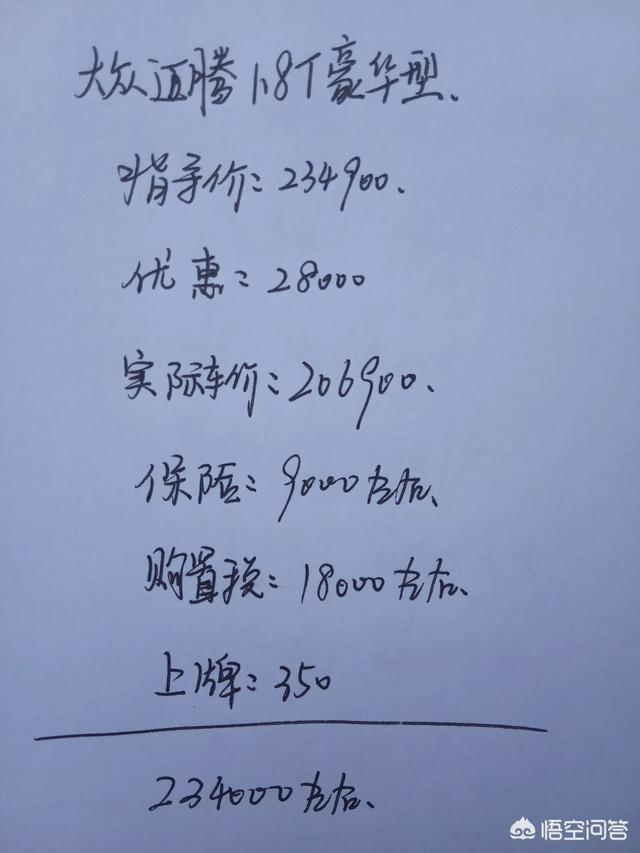 大众迈腾1.8T豪华型、
指导价：234900、
优惠：28000
实际车价：206900、
保险：9000左右、
购置税：18000左右、
上牌：350
234000左右、
悟空问答